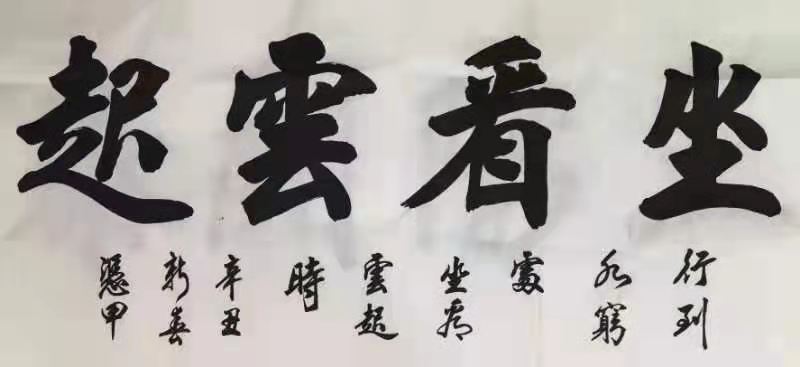 坐看雲起
行到
水窮
處
坐看
雲起
時
辛丑
新春
憑甲